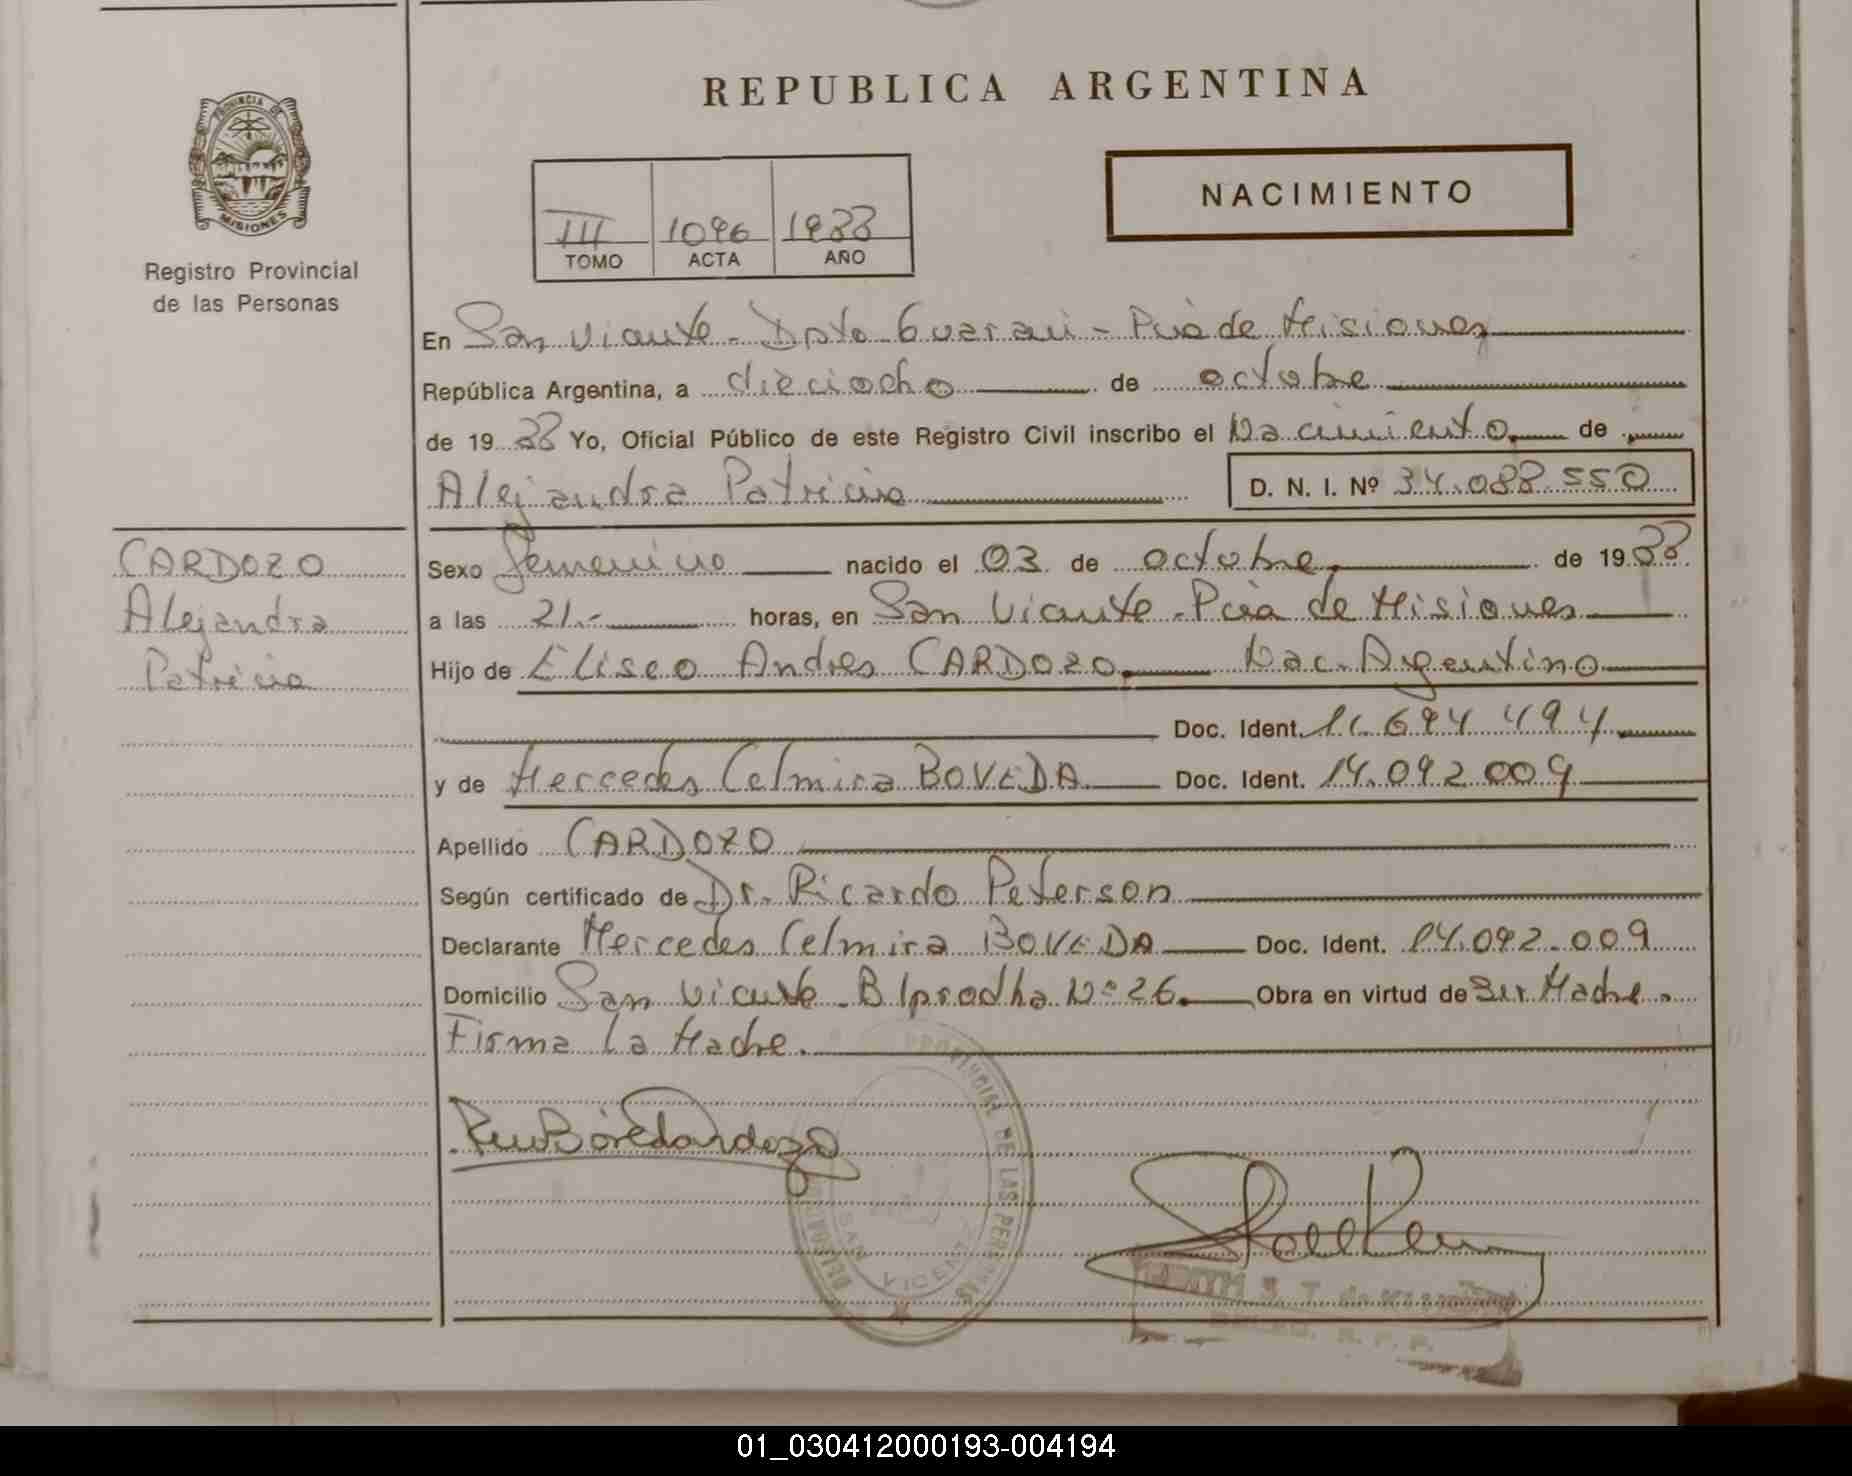 REPUBLICA ARGENTINA
PROVINCIA DE MISIONES
Registro Provincial
de las Personas
NACIMIENTO
III 1096 1988
TOMO ACTA AÑO
En San Vicente - Dpto Guarani - Pcia de Misiones
República Argentina, a dieciocho de octubre
de 1988 Yo, Oficial Público de este Registro Civil inscribo el Nacimiento de
Alejandra Patricia D. N. I. Nº 34.088.550
CARDOZO
Alejandra
Patricia
Sexo femenino nacido el 03 de octubre de 1988
a las 21.- horas, en San Vicente - Pcia de Misiones
Hijo de Eliseo Andres CARDOZO Nac. Argentino
Doc. Ident. 11.694.494
y de Mercedes Celmira BOVEDA Doc. Ident. 14.092.009
Apellido CARDOZO
Según certificado de Dr. Ricardo Peterson
Declarante Mercedes Celmira BOVEDA Doc. Ident. 14.092.009
Domicilio San Vicente - B Iprodha Nº 26. Obra en virtud de Ser Madre.
Firma la Madre.
PROVINCIAL DE LAS PERSONAS
SAN VICENTE
01_030412000193-004194